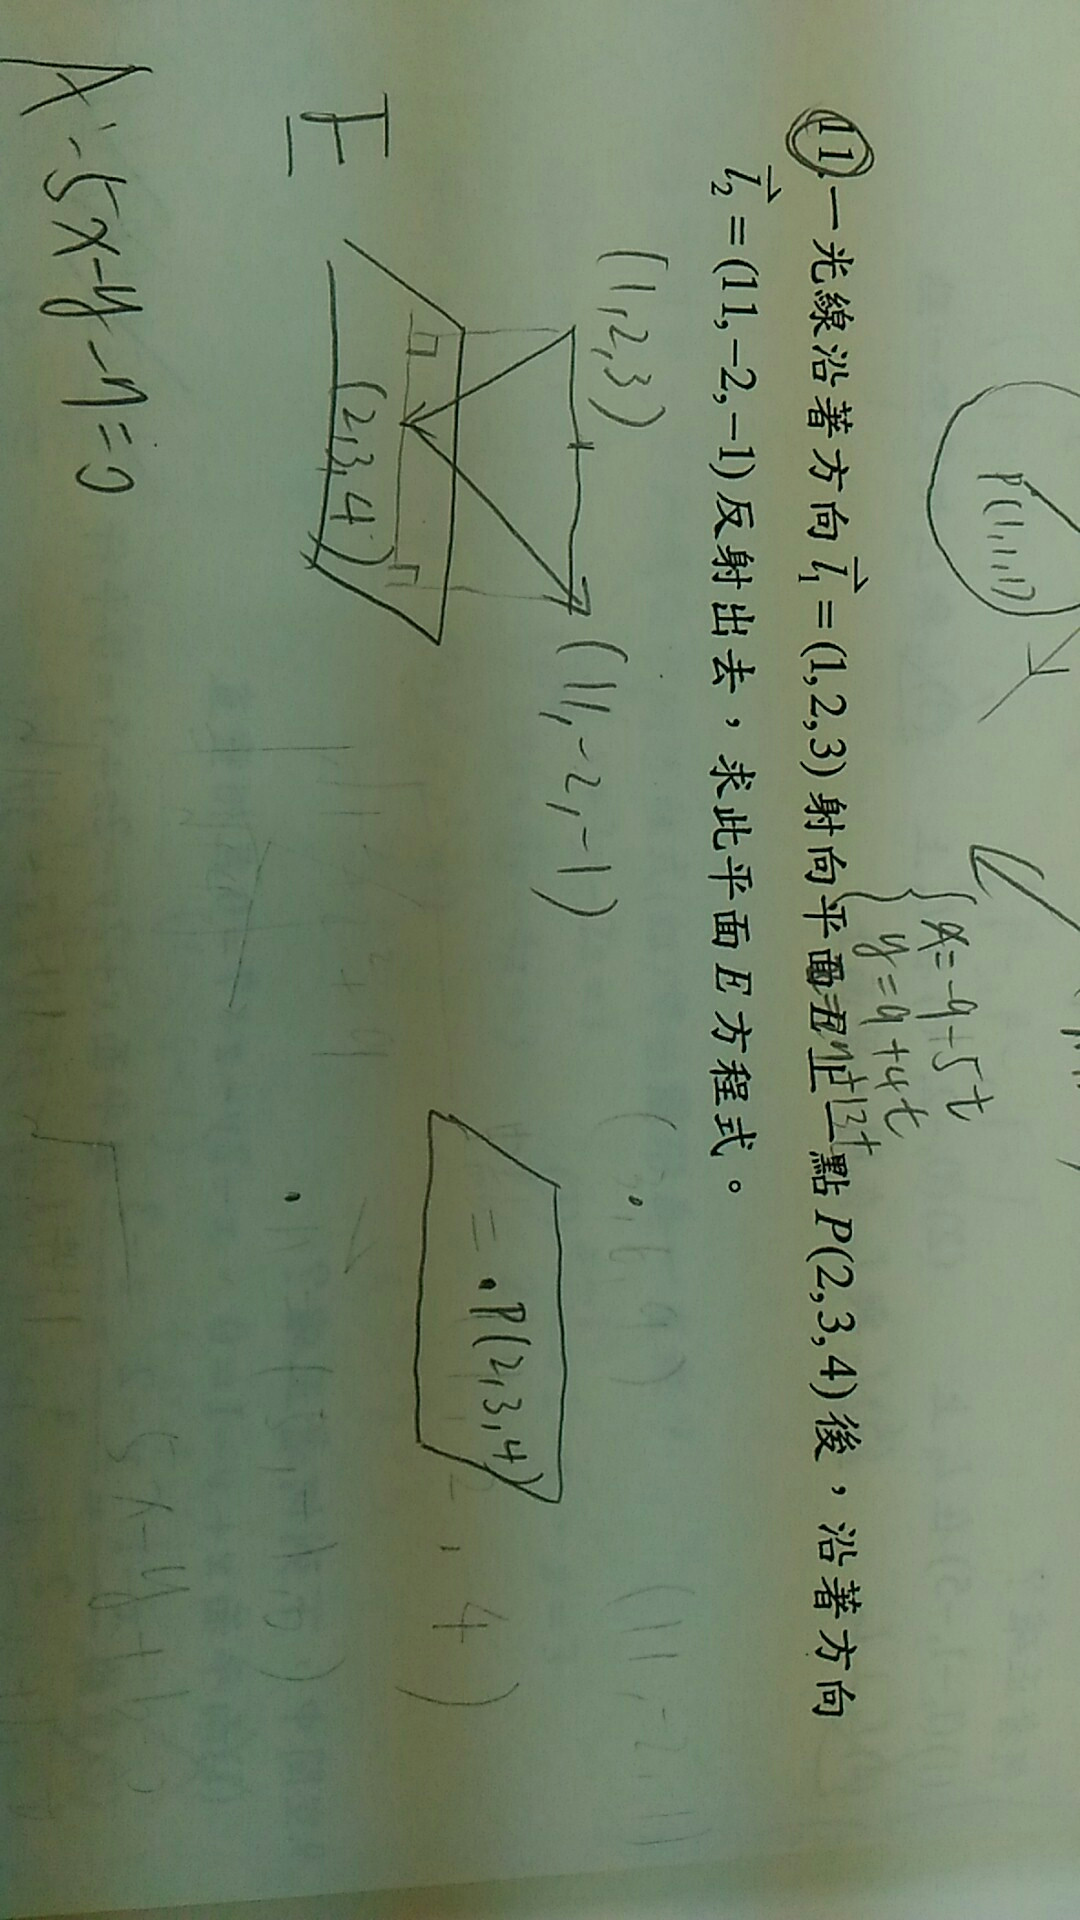 P(1,1,1)
x=-9+5t
y=9+4t
11.一光線沿著方向l₁=(1,2,3)射向平面E上一點P(2,3,4)後，沿著方向
l₂=(11,-2,-1)反射出去，求此平面E方程式。
(1,2,3)
(11,-2,-1)
(2,3,4)
E
P(2,3,4)
A:5x-y-7=0